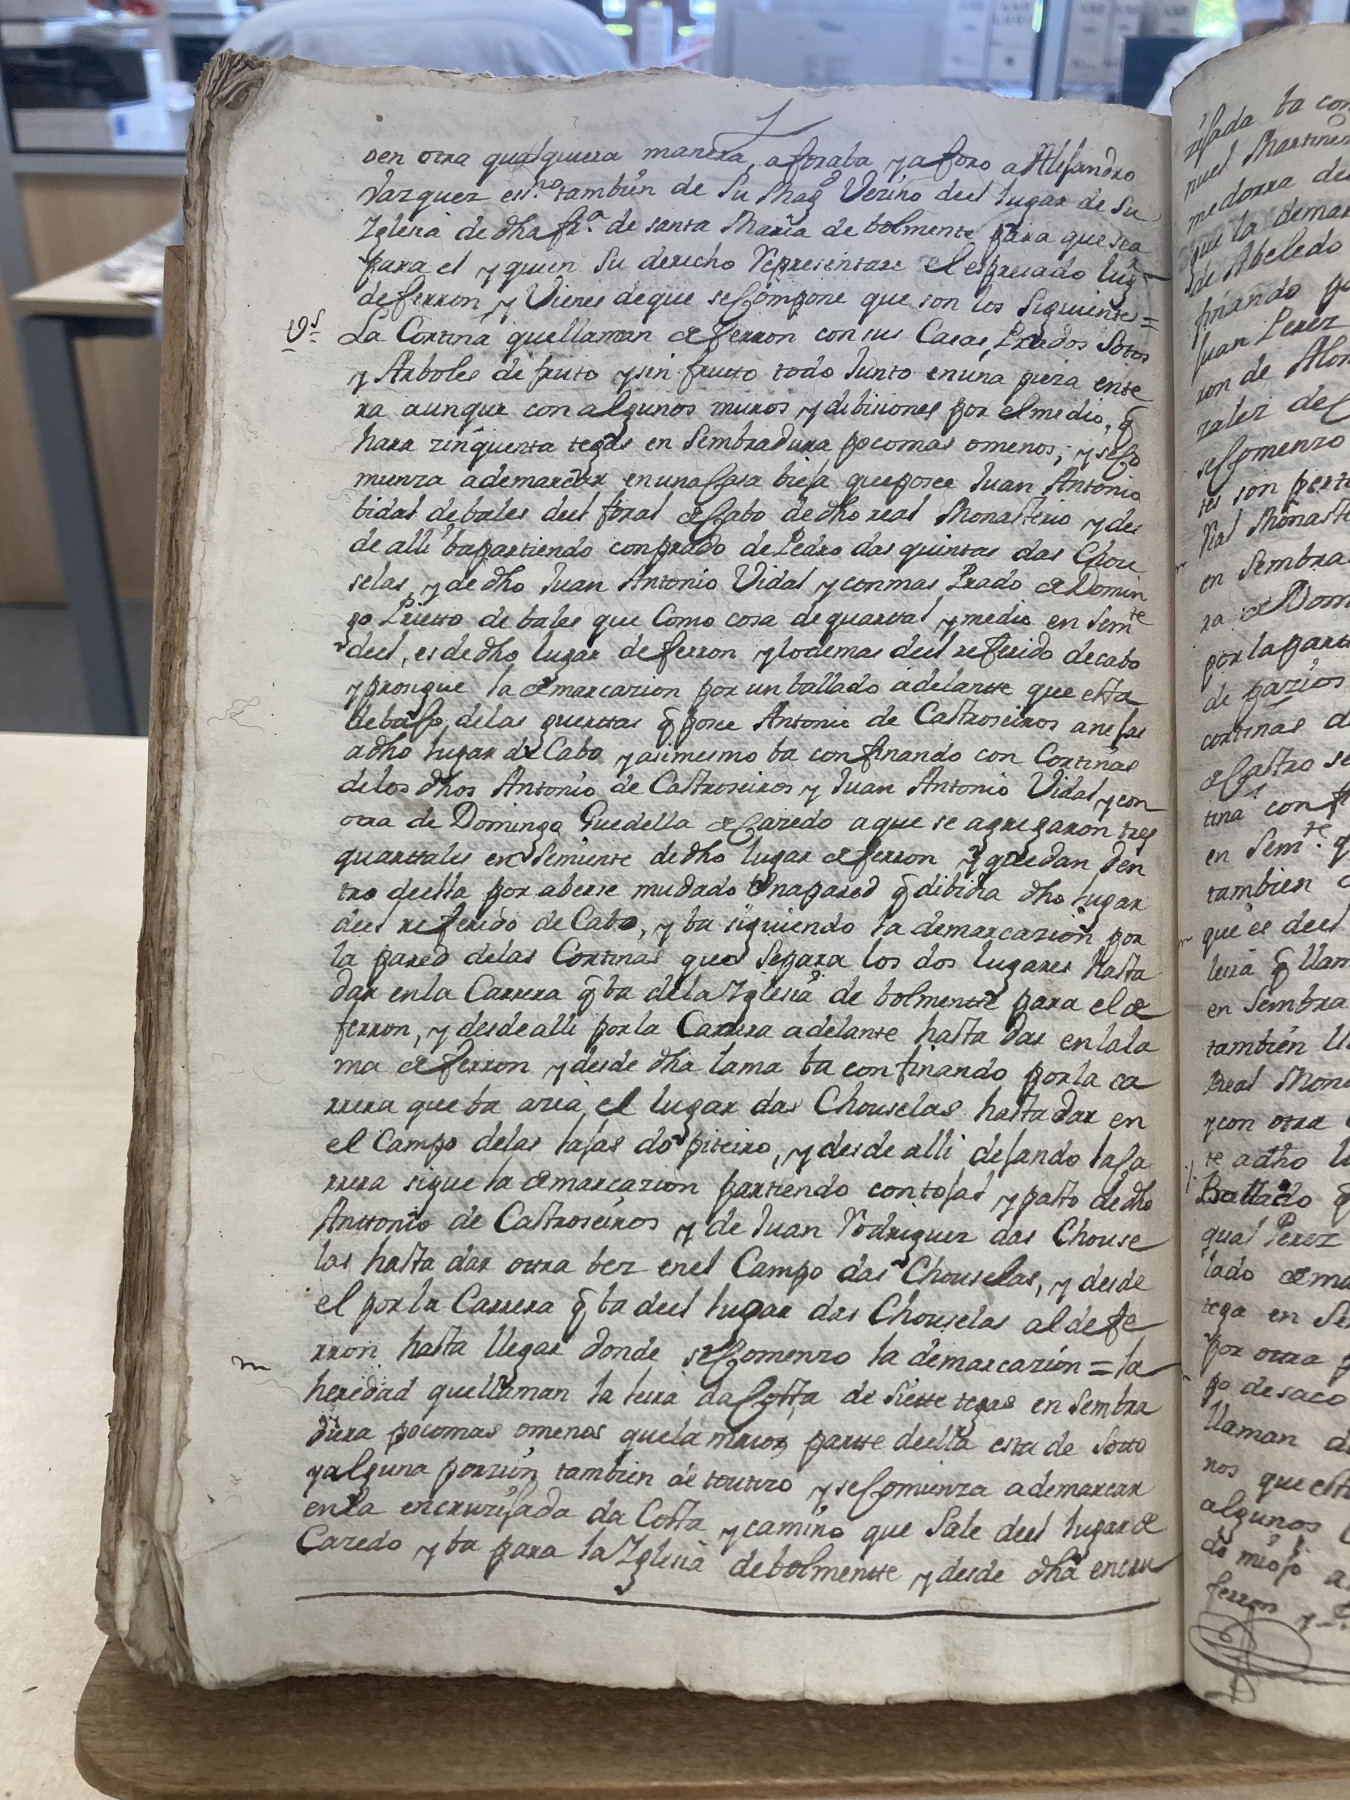 oen otra qualquiera manera, aforaba y aforo a Alejandro
Vazquez es.no tambien de Su Mag.d Vezino deel lugar de Su
Yglesia de dha fra. de santa Maria de bolmente para que sea
para el y quien Su derecho Representare el espresado lug.r
de ferron, y Vienes deque se Compone que son los Siguientes=
Vs. La Cortina quellaman de ferron con sus Casas, Prados Sotos
y Arboles de fruto y sin frutto todo Junto en una pieza ente
ra aunque con algunos muros y dibisiones por el medio, q
hara zinquenta tegas en Sembradura poco mas o menos, y se Co
mienza a demarcar en una Casa bieja que posee Juan Antonio
bidal de bales deel foral de Cabo de dho real Monasterio y des
de alli ba partiendo con prado de Pedro das quintas das Chou
selas, y de dho Juan Antonio Vidal y con mas Prado de Domin
go Prietto de bales que Como cosa de quartal y medio en Semte
deel, es de dho lugar de ferron y lo demas deel referido de cabo
y prosigue la demarcazion por un ballado adelantte que esta
debajo de las huerttas q posee Antonio de Castroseiros anejas
a dho lugar de Cabo y asimesmo ba confinando con Cortinas
de los dhos Antonio de Castroseiros y Juan Antonio Vidal, y con
otra de Domingo Guedella de Cazedo a que se agregaron tres
quarttales en Semiente de dho lugar de ferron y quedan Den
tro deella por aberse mudado Una pared q dibidia dho lugar
deel referido de Cabo, y ba siguiendo la demarcazion por
la pared de las Cortinas que Separa los dos lugares hasta
Dar en la Carrera q ba de la Yglesia de bolmentte para el de
ferron, y desde alli por la Carrera adelante hasta Dar en la la
ma de ferron y desde dha lama ba confinando por la ca
rrera que ba azia el lugar das Chouselas hasta dar en
el Campo de las lajas do piteiro, y desde alli dejando la Ca
rrera sigue la demarcazion partiendo con tojal y pasto de dho
Anttonio de Castroseiros y de Juan Rodriguez das Chouse
las hasta dar ottra bez en el Campo das Chouselas, y desde
el por la Carrera q ba deel lugar das Chouselas al de fe
rron hasta llegar donde se Comenzo la demarcazion = la
heredad quellaman la leira da Costa de siette tegas en Sembra
dura poco mas o menos que la maior partte deella esta de Sotto
y alguna porzion tambien de touttizo y se Comienza a demarcar
en la encruzijada da Costa y camino que Sale deel lugar de
Cazedo y ba para la Yglesia de bolmentte y desde dha encru
zijada ba con
nuel Martinez
que la demar
de Abeledo
Juan Perez
zon de Alon
se Comenzo
Real Monaste
en Sembra
de Dom
por la parte
de pazios
cortinas d
de Castro se
tina con
en Semte. q
tambien
que es deel
leira q llam
en Sembra
tambien ll
Real Mona
y con otra
te a dho l
Ballado q
qual Perez
lado
tega en Se
por ottra p
llaman d
nos que est
algunos
ferron y